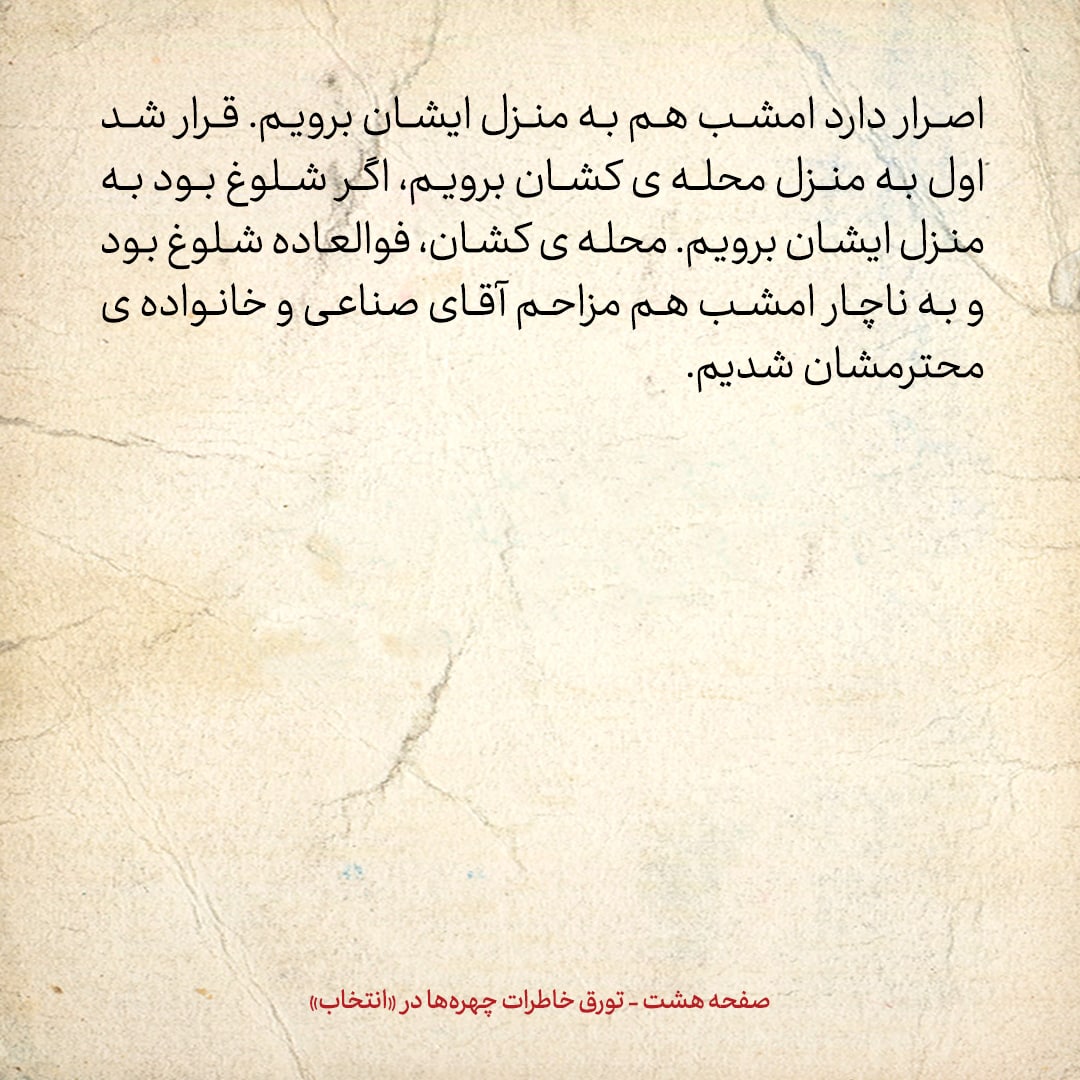 اصرار دارد امشب هم به منزل ایشان برویم. قرار شد
اول به منزل محله ی کشان برویم، اگر شلوغ بود به
منزل ایشان برویم. محله ی کشان، فوالعاده شلوغ بود
و به ناچار امشب هم مزاحم آقای صناعی و خانواده ی
محترمشان شدیم.
صفحه هشت - تورق خاطرات چهره‌ها در «انتخاب»